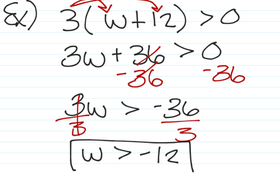 Ex) 3(w+12) > 0
3w + 36 > 0
-36 -36
3w > -36
3 3
w > -12